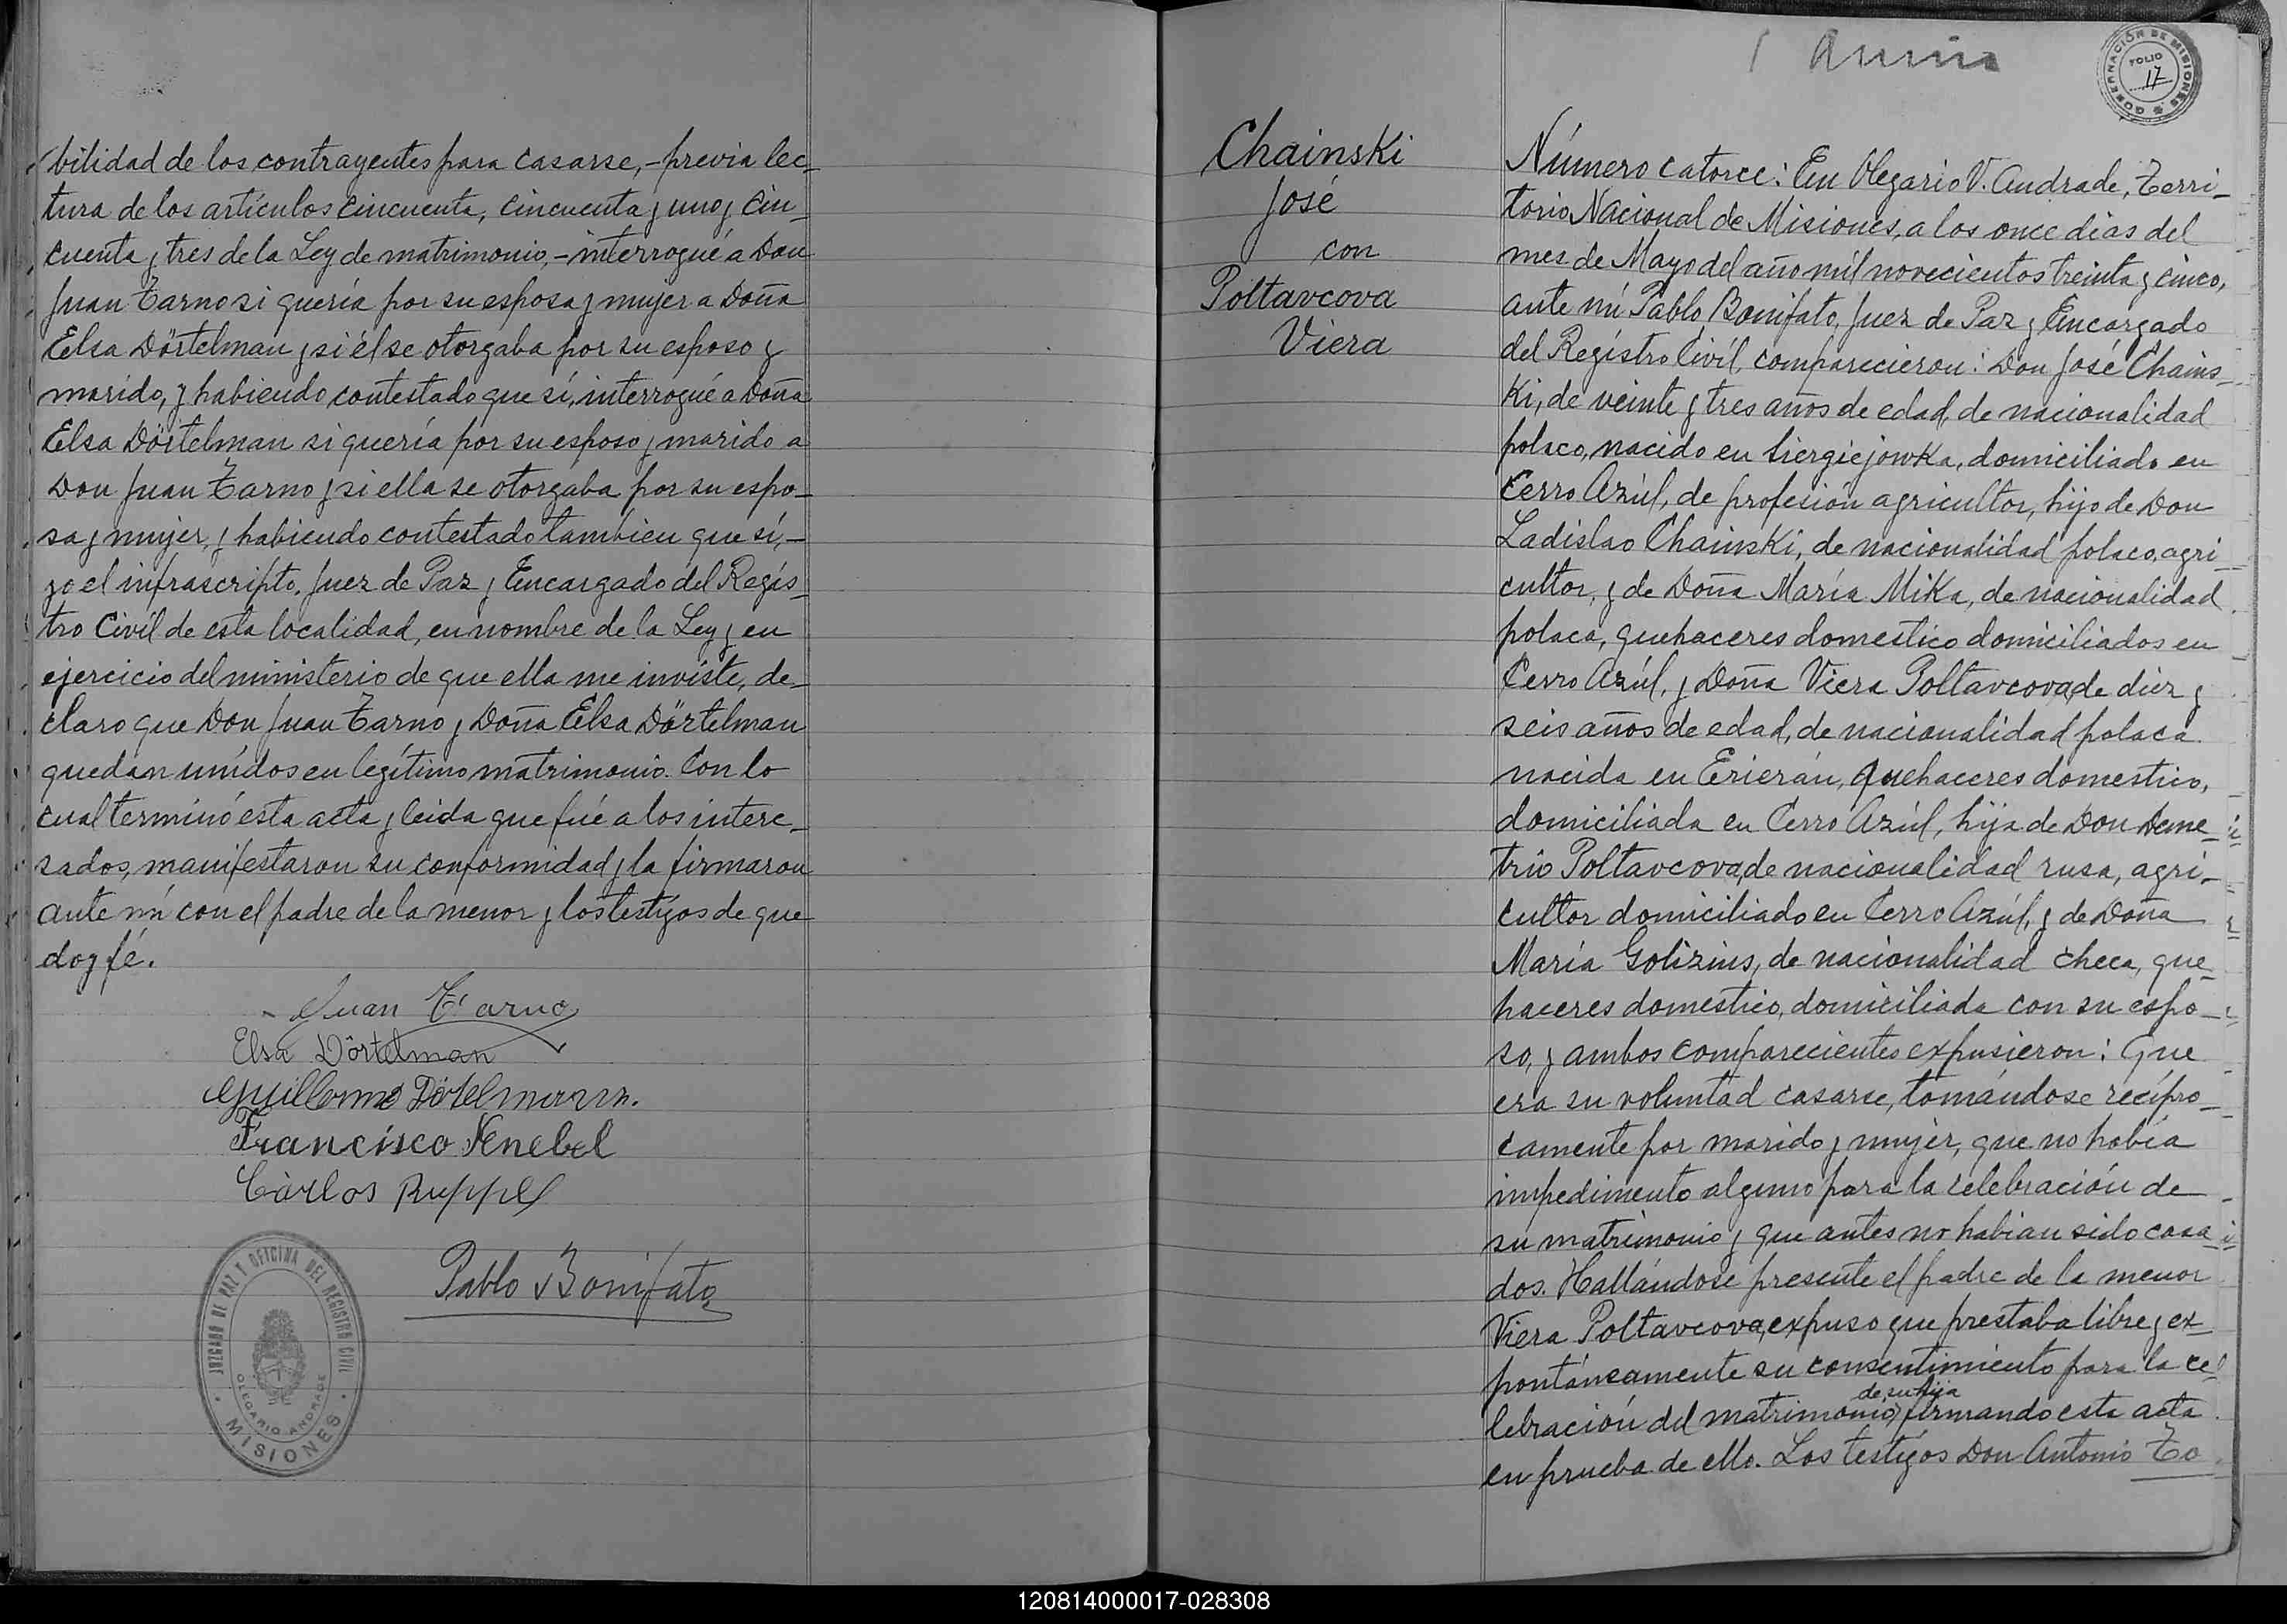 bilidad de los contrayentes para casarse, - previa lec-
tura de los artículos cincuenta, cincuenta y uno y cin-
cuenta y tres de la Ley de matrimonio, - interrogué a Don
Juan Tarno si quería por su esposa y mujer a Doña
Elsa Dörtelman y si él se otorgaba por su esposo y
marido, y habiendo contestado que sí, interrogué a Doña
Elsa Dörtelman si quería por su esposo y marido a
Don Juan Tarno y si ella se otorgaba por su espo-
sa y mujer, y habiendo contestado tambien que sí, -
yo el infrascripto, Juez de Paz y Encargado del Regís-
tro Civíl de esta localidad, en nombre de la Ley y en
ejercicio del ministerio de que ella me inviste, de-
claro que Don Juan Tarno y Doña Elsa Dörtelman
quedan unídos en legítimo matrimonio. Con lo
cual terminó esta acta y leida que fué a los intere-
sados, manifestaron su conformidad y la firmaron
ante mí con el padre de la menor y los testigos de que
doy fé.
Juan Tarno
Elsa Dörtelman
Guillermo Dörtelmann.
Francisco Knebel
Carlos Ruppel
Pablo Bonifato
JUZGADO DE PAZ Y OFICINA DEL REGISTRO CIVIL
OLEGARIO ANDRADE
MISIONES
GOBERNACIÓN DE MISIONES
FOLIO
17
Chainski
José
con
Poltavcova
Viera
Número catorce: En Olegario V. Andrade, Terri-
torio Nacional de Misiones, a los once dias del
mes de Mayo del año mil novecientos treinta y cinco,
ante mí Pablo Bonifato, Juez de Paz y Encargado
del Regístro Civíl, comparecieron: Don José Chains-
ki, de veinte y tres años de edad, de nacionalidad
polaco, nacido en Siergiejowka, domiciliado en
Cerro Azúl, de profesión agricultor, hijo de Don
Ladislao Chainski, de nacionalidad polaco, agri-
cultor, y de Doña María Mika, de nacionalidad
polaca, quehaceres domestico domiciliados en
Cerro Azúl, y Doña Viera Poltavcova, de diez y
seis años de edad, de nacionalidad polaca
nacida en Erierán, quehaceres domestico,
domiciliada en Cerro Azúl, hija de Don Deme-
trio Poltavcova, de nacionalidad rusa, agri-
cultor domiciliado en Cerro Azúl, y de Doña
María Golizins, de nacionalidad checa, que-
haceres domestico, domiciliada con su espo-
so, y ambos comparecientes expusieron: Que
era su voluntad casarse, tomándose recípro-
camente por marido y mujer, que no había
impedimento alguno para la celebración de
su matrimonio y que antes no habian sido casa-
dos. Hallándose presente el padre de la menor
Viera Poltavcova, expuso que prestaba libre y ex-
pontáneamente su consentimiento para la ce-
de su hija
lebración del matrimonio, firmando esta acta
en prueba de ello. Los testigos Don Antonio To
120814000017-028308